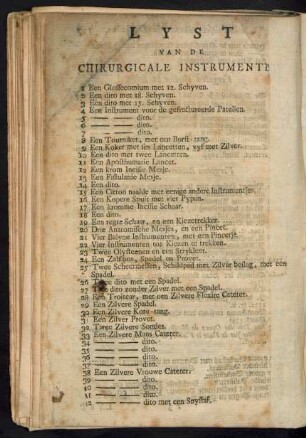 LYST
VAN DE
CHIRURGICALE INSTRUMENTE
1 Een Glossocomium met 12. Schyven.
2 Een dito met 18. Schyven.
3 Een dito met 15. Schyven.
4 Een Instrument voor de gefractureerde Patellen.
5 — — — dito.
6 — — — dito.
7 — — — dito.
8 Een Tourniket, met een Borst-tang.
9 Een Koker met ses Lancetten, vyf met Zilver.
10 Een dito met twee Lancetten.
11 Een Aposthumarie Lancet.
12 Een krom Incisie Mesje.
13 Een Fistulatie Mesje.
14 Een dito.
15 Een Citroo naalde met eenige andere Instrumentjes.
16 Een Kopere Spuit met vier Pypen.
17 Een kromme Incisie Schaar.
18 Een dito.
19 Een regte Schaar, en een Kiezetrekker.
20 Drie Anatomische Mesjes, en een Pincet.
21 Vier Beloye Instrumenten, met een Pincetje.
22 Vier Instrumenten tot Kiezen te trekken.
23 Twee Olysteenen en een Strekken.
24 Een Zalfspa, Spadel en Provet.
25 Twee Scheermessen, Schildpad met Zilver beslag, met een
Spadel.
26 dito met een Spadel.
27 dito zonder Zilver met een Spadel.
28 Een Troitcar, met een Zilvere Flexire Cateter.
29 Een Zilvere Spadel.
30 Een Zilvere Korn-tang.
31 Een Zilver Provet.
32 Twee Zilvere Sondes.
33 Een Zilvere Mans Cateter.
34 — — — dito.
35 — — — dito.
36 — — — dito.
37 — — — dito.
38 Een Zilvere Vrouwe Cateter.
39 — — — dito.
40 — — — dito.
41 — — — dito.
42 — — — dito met een